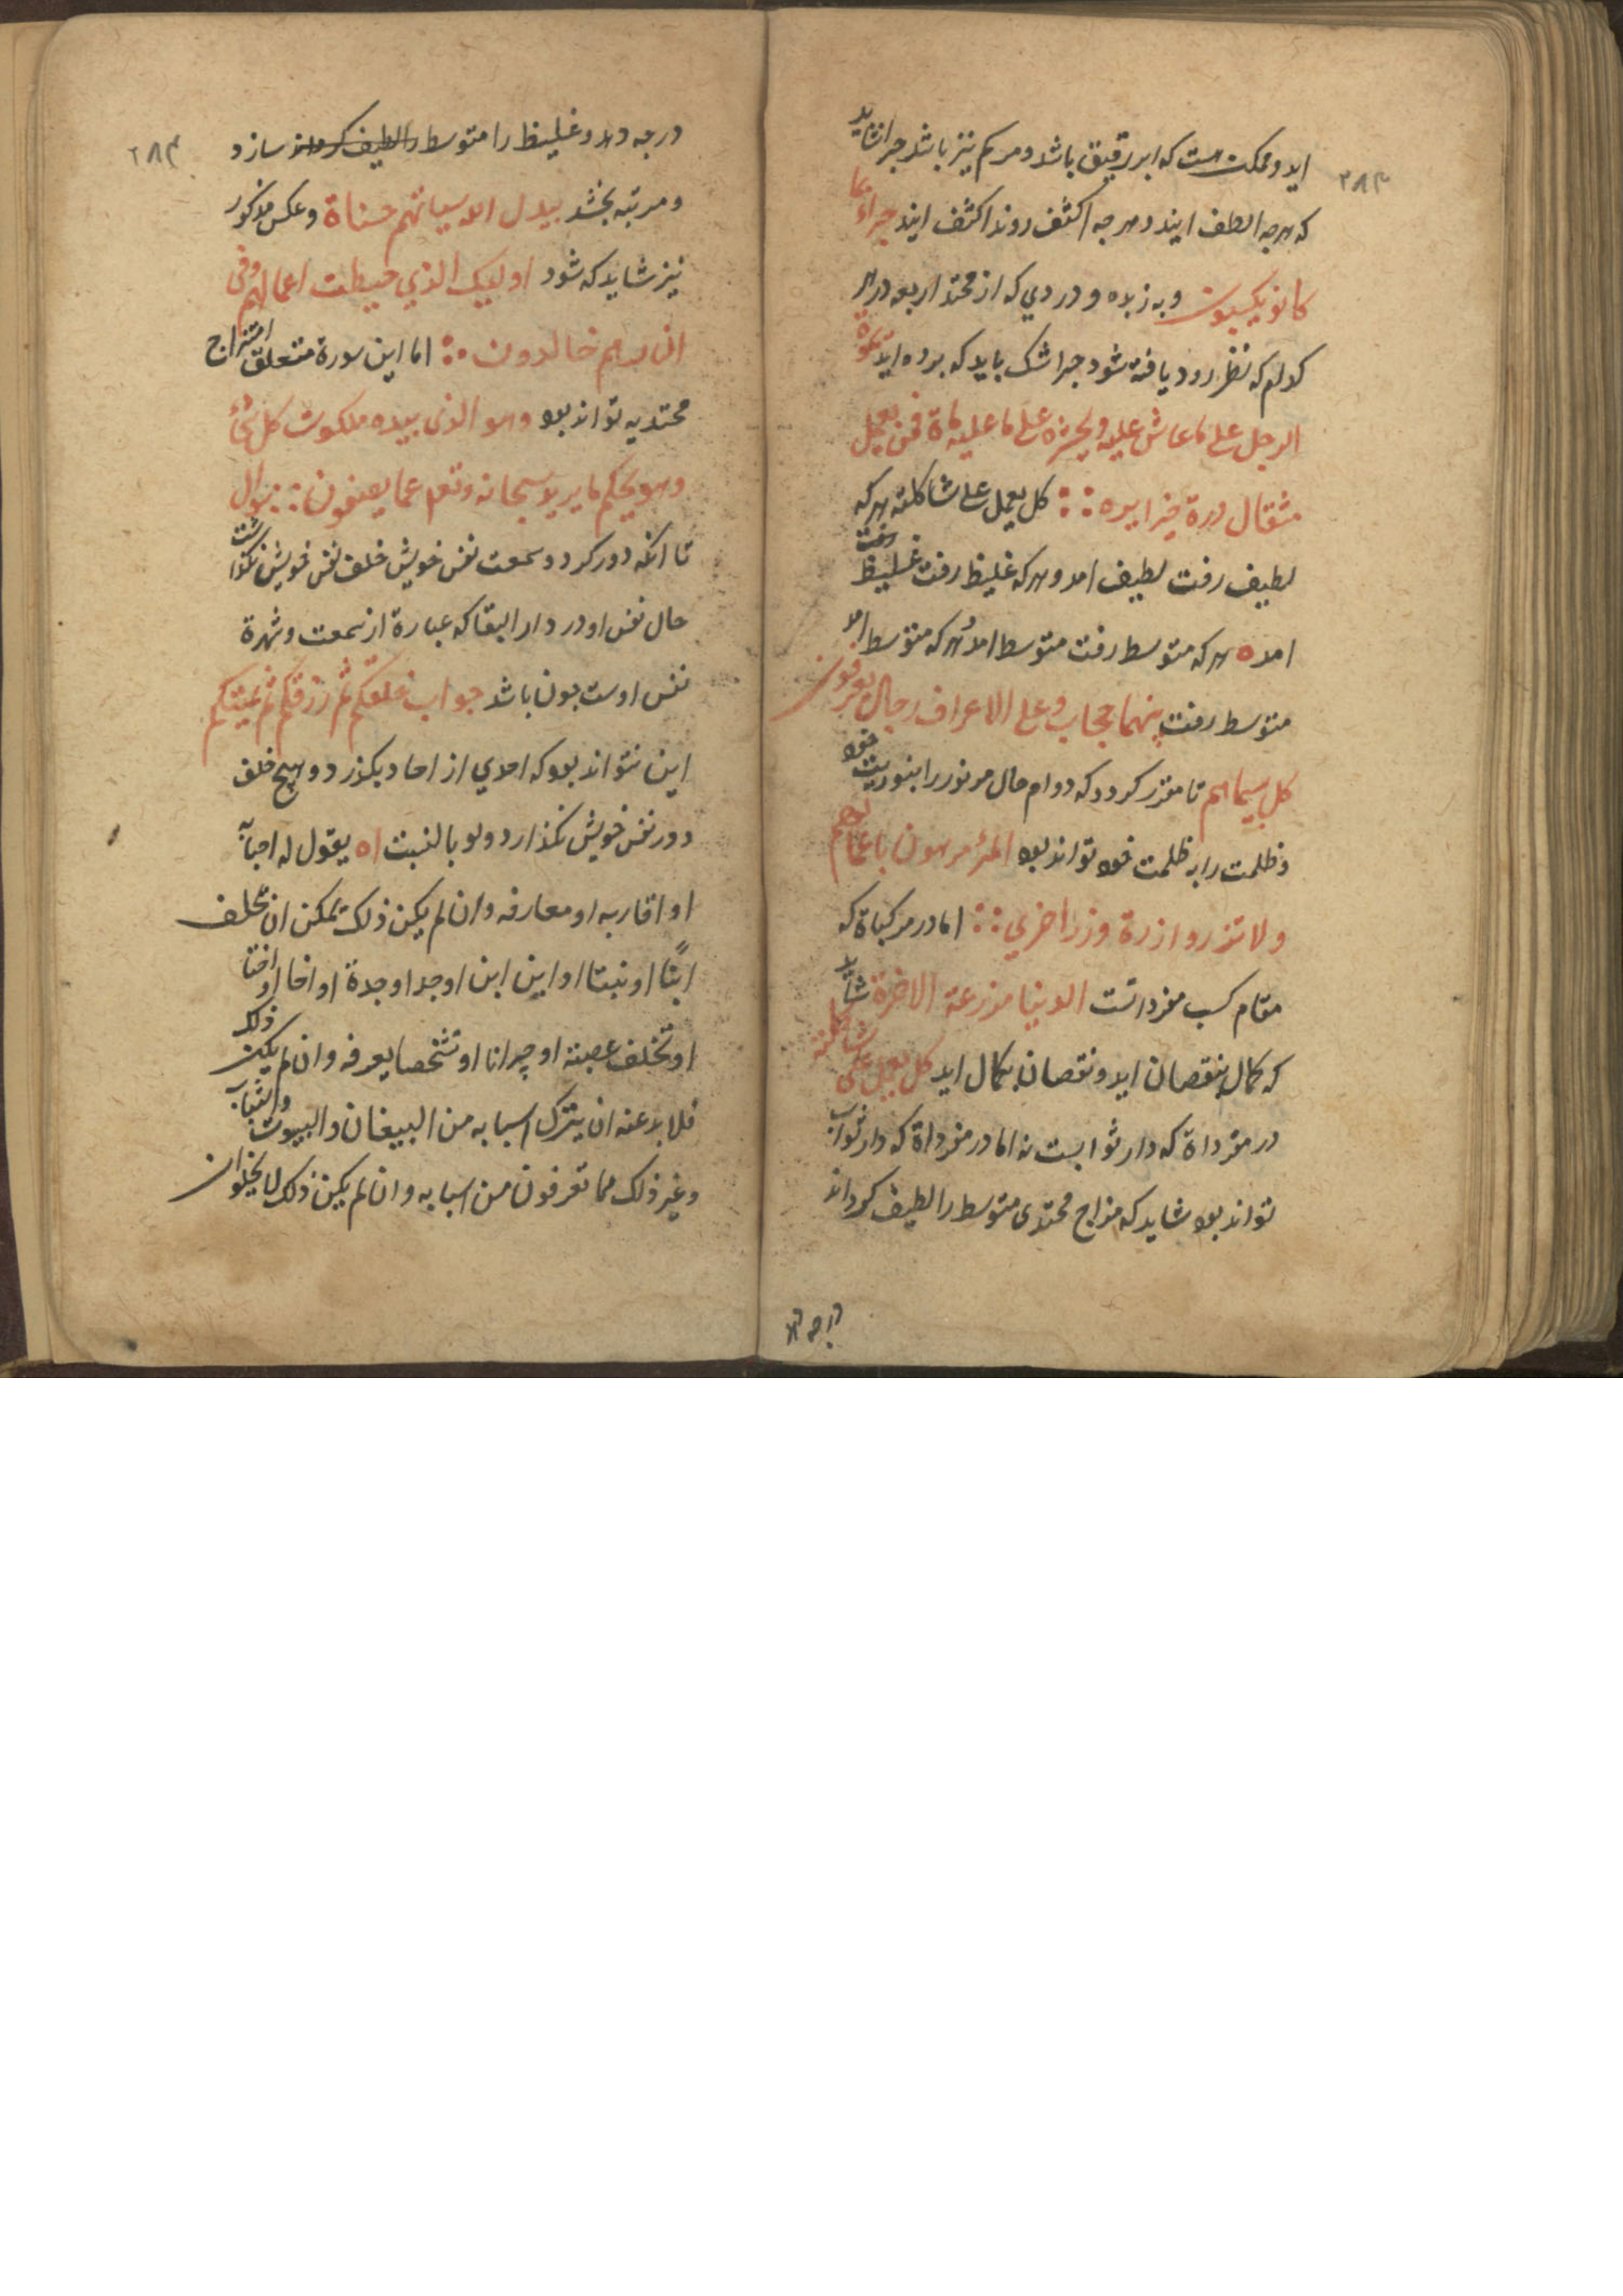 ۲۸۳
اید و ممکن هست که ابر رقیق باشد و مرکم نیز باشد جرا نشاید
که هرچه الطف ایند و هرجه اکثف روند اکثف ایند جزاء بما
کانو یکسبون و به زبده و دردی که از محتد اربعه در هر
کدام که نظر رود یافته شود جرا شک باید که برده اید تموة
الرجل علی ما عاش علیه و یحشره علی ما علیه ماة فمن یعمل
مثقال درة خیرا یره ∴ کل یعمل علی شاکلته هر که
لطیف رفت لطیف امد و هر که غلیظ رفت غلیظ رفت
امده هر که متوسط رفت متوسط امد هر که متوسط امد
متوسط رفت بینهما حجاب و علی الاعراف رجال یعرفون
کل سیماهم تا مقرر کردد که دوام حال مر نور را بنوریت خود
و ظلمت را به ظلمت خود تواند بود المرٔ مرهون باعمالهم
و لا تزر وازرة وزر اخری ∴ اما در مرکباة که
مقام کسب مفرداتست الدنیا مزرعة الاخرة شاید
که کمال بنقصان اید و نقصان بکمال اید کل یعمل علی شاکلته
در مفرداة که دار ثوابست نه اما در مفرداة که دار ثواب
تواند بود شاید که مزاج محتدی متوسط را لطیف کرداند
درجه دهد
۲۸۴
درجه دهد و غلیظ را متوسط را لطیف کرداند سازد
و مرتبه بخشد یبدل الله سیاتهم حسناة و عکس مذکور
نیز شاید که شود اولیک الذی حبطت اعمالهم و فی
النار هم خالدون ∴ اما این سورة متعلق امتزاج
محتدیه تواند بود و هو الذی بیده ملکوت کل شئ
و هو یحکم ما یرید سبحانه و تعم عما یصفون ∴ سوال
تا انکه دور کردد و سمعت نفس خویش خلف نفس خویش نکذاشت
حال نفس او در دار البقا که عبارة از سمعت و شهرة
نفس اوست جون باشد جواب خلقکم ثم رزقکم ثم یمیتکم
این نتواند بود که احدی از احاد بکذرد و هیچ خلف
دور نفس خویش نکذارد ولو بالنسبت اه یقول له احبآ
او اقاربه او معارفه و ان لم یکن ذلک یمکن ان تخلف
ابنًا او بنتا او ابن ابن او جد او جدة او اخا او اختا
او تخلف عصبته او جیرانا او شخصا یعرفه و ان لم یکن ذلک
فلابد عنه ان یترک اسبابه من البیغان و البیوت و الثیاب
و غیر ذلک مما تعرفون من اسبابه و ان لم یکن ذلک لا یخلو ان